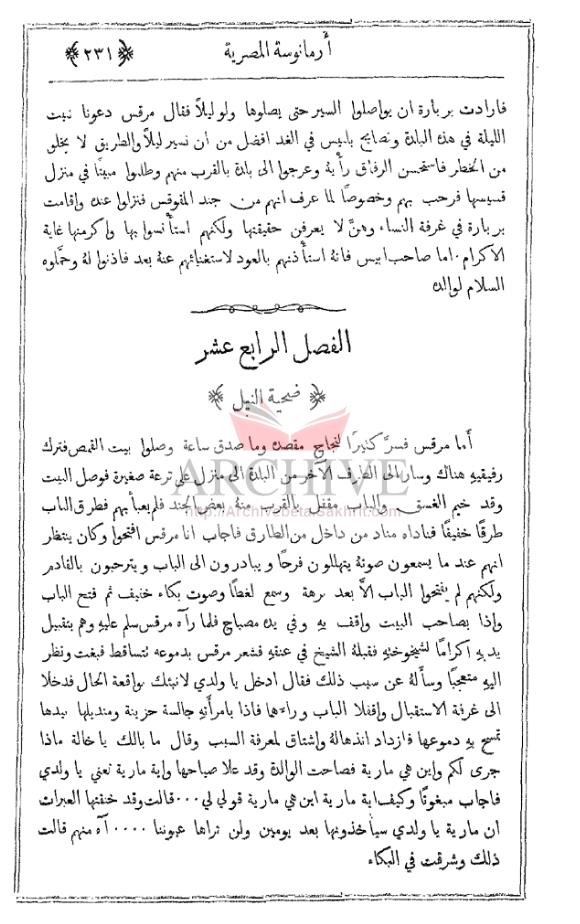 أرمانوسة المصرية
﴿٢٣١﴾
فارادت بربارة ان يواصلوا السير حتى يصلوها ولو ليلاً فقال مرقس دعونا نبيت
الليلة في هذه البلدة ونصابح بلبيس في الغد افضل من ان نسير ليلاً والطريق لا يخلو
من الخطر فاستحسن الرفاق رأيهُ وعرجوا الى بلدة بالقرب منهم وطلبوا مبيتاً في منزل
قسيسها فرحب بهم وخصوصاً لما عرف انهم من جند المقوقس فنزلوا عنده واقامت
بربارة في غرفة النساء وهنَّ لا يعرفن حقيقتها ولكنهم استأنسوا بها واكرمنها غاية
الاكرام. اما صاحب ابيس فانهُ استأذنهم بالعود لاستغنائهم عنهُ بعد فاذنوا لهُ وحمَّلوه
السلام لوالده
الفصل الرابع عشر
﴿ ضحية النيل ﴾
أما مرقس فسرَّ كثيرًا لنجاح مقصده وما صدق ساعة وصلوا بيت القمص فترك
رفيقيهِ هناك وسار الى الطرف الآخر من البلدة الى منزل على ترعة صغيرة فوصل البيت
وقد خيم الغسق والباب مقفل بالقرب منهُ بعض الجند فلم يعبأ بهم فطرق الباب
طرقًا خفيفًا فناداه مناد من داخل من الطارق فاجاب انا مرقس افتحوا وكان ينتظر
انهم عند ما يسمعون صوتهُ يتهللون فرحًا و يبادرون الى الباب و يترحبون بالقادم
ولكنهم لم يفتحوا الباب الاَّ بعد برهة وسمع لغطًا وصوت بكاء خفيف ثم فتح الباب
واذا بصاحب البيت واقف بهِ وفي يده مصباح فلما رآه مرقس سلم عليهِ وهم بتقبيل
يديهِ اكرامًا لشيخوختهِ فقبلهُ الشيخ في عنقهِ فشعر مرقس بدموعه تتساقط فبغت ونظر
اليهِ متعجبًا وسأله عن سبب ذلك فقال ادخل يا ولدي لانبئك بواقعة الحال فدخلا
الى غرفة الاستقبال واقفلا الباب وراءهما فاذا بامرأتهِ جالسة حزينة ومنديلها بيدها
تمسح بهِ دموعها فازداد انذهالهُ واشتاق لمعرفة السبب وقال ما بالك يا خالة ماذا
جرى لكم واين هي مارية فصاحت الوالدة وقد علا صياحها واية مارية تعني يا ولدي
فاجاب مبغوتًا وكيف اية مارية اين هي مارية قولي لي ... قالت وقد خنقتها العبرات
ان مارية يا ولدي سيأخذونها بعد يومين ولن تراها عيوننا .... آه منهم قالت
ذلك وشرقت في البكاء
ARCHIVE
http://Archivebeta.Sakhrit.com